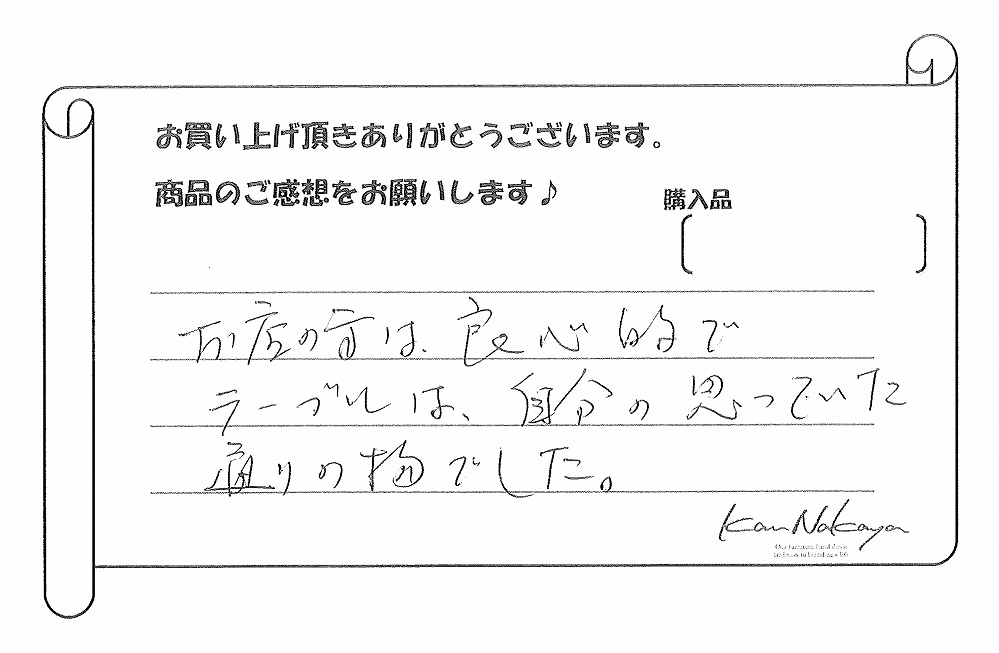 お買い上げ頂きありがとうございます。
商品のご感想をお願いします♪
購入品
お店の方は、良心的で
テーブルは、自分の思っていた
通りの物でした。
Kan Nakaya